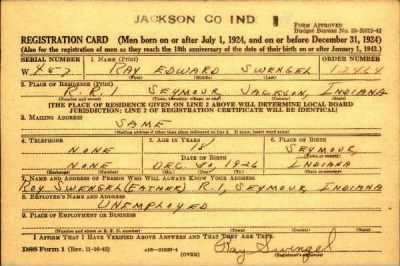 JACKSON CO IND
FORM APPROVED
Budget Bureau No. 33-R012-42
REGISTRATION CARD (Men born on or after July 1, 1924, and on or before December 31, 1924)
(Also for the registration of men as they reach the 18th anniversary of the date of their birth on or after January 1, 1943.)
SERIAL NUMBER 1. NAME (Print) ORDER NUMBER
W RAY EDWARD SWENGEL
2. PLACE OF RESIDENCE (Print)
R.R.1 SEYMOUR JACKSON, INDIANA
(Number and street) (Town, township, village, or city) (County) (State)
[THE PLACE OF RESIDENCE GIVEN ON LINE 2 ABOVE WILL DETERMINE LOCAL BOARD
JURISDICTION; LINE 2 OF REGISTRATION CERTIFICATE WILL BE IDENTICAL]
3. MAILING ADDRESS
SAME
(Mailing address if other than place indicated on line 2. If same, insert word same)
4. TELEPHONE 5. AGE IN YEARS 6. PLACE OF BIRTH
NONE 18 SEYMOUR,
DATE OF BIRTH (Town or county)
NONE DEC. 1926 INDIANA
(Exchange) (Number) (Mo.) (Day) (Yr.) (State or country)
7. NAME AND ADDRESS OF PERSON WHO WILL ALWAYS KNOW YOUR ADDRESS
ROY SWENGEL (FATHER) R.1, SEYMOUR INDIANA
8. EMPLOYER'S NAME AND ADDRESS
UNEMPLOYED
9. PLACE OF EMPLOYMENT OR BUSINESS
(Number and street or R. F. D. number) (Town) (County) (State)
I AFFIRM THAT I HAVE VERIFIED ABOVE ANSWERS AND THAT THEY ARE TRUE.
DSS Form 1 (Rev. 11-16-42) (OVER) Ray Swengel